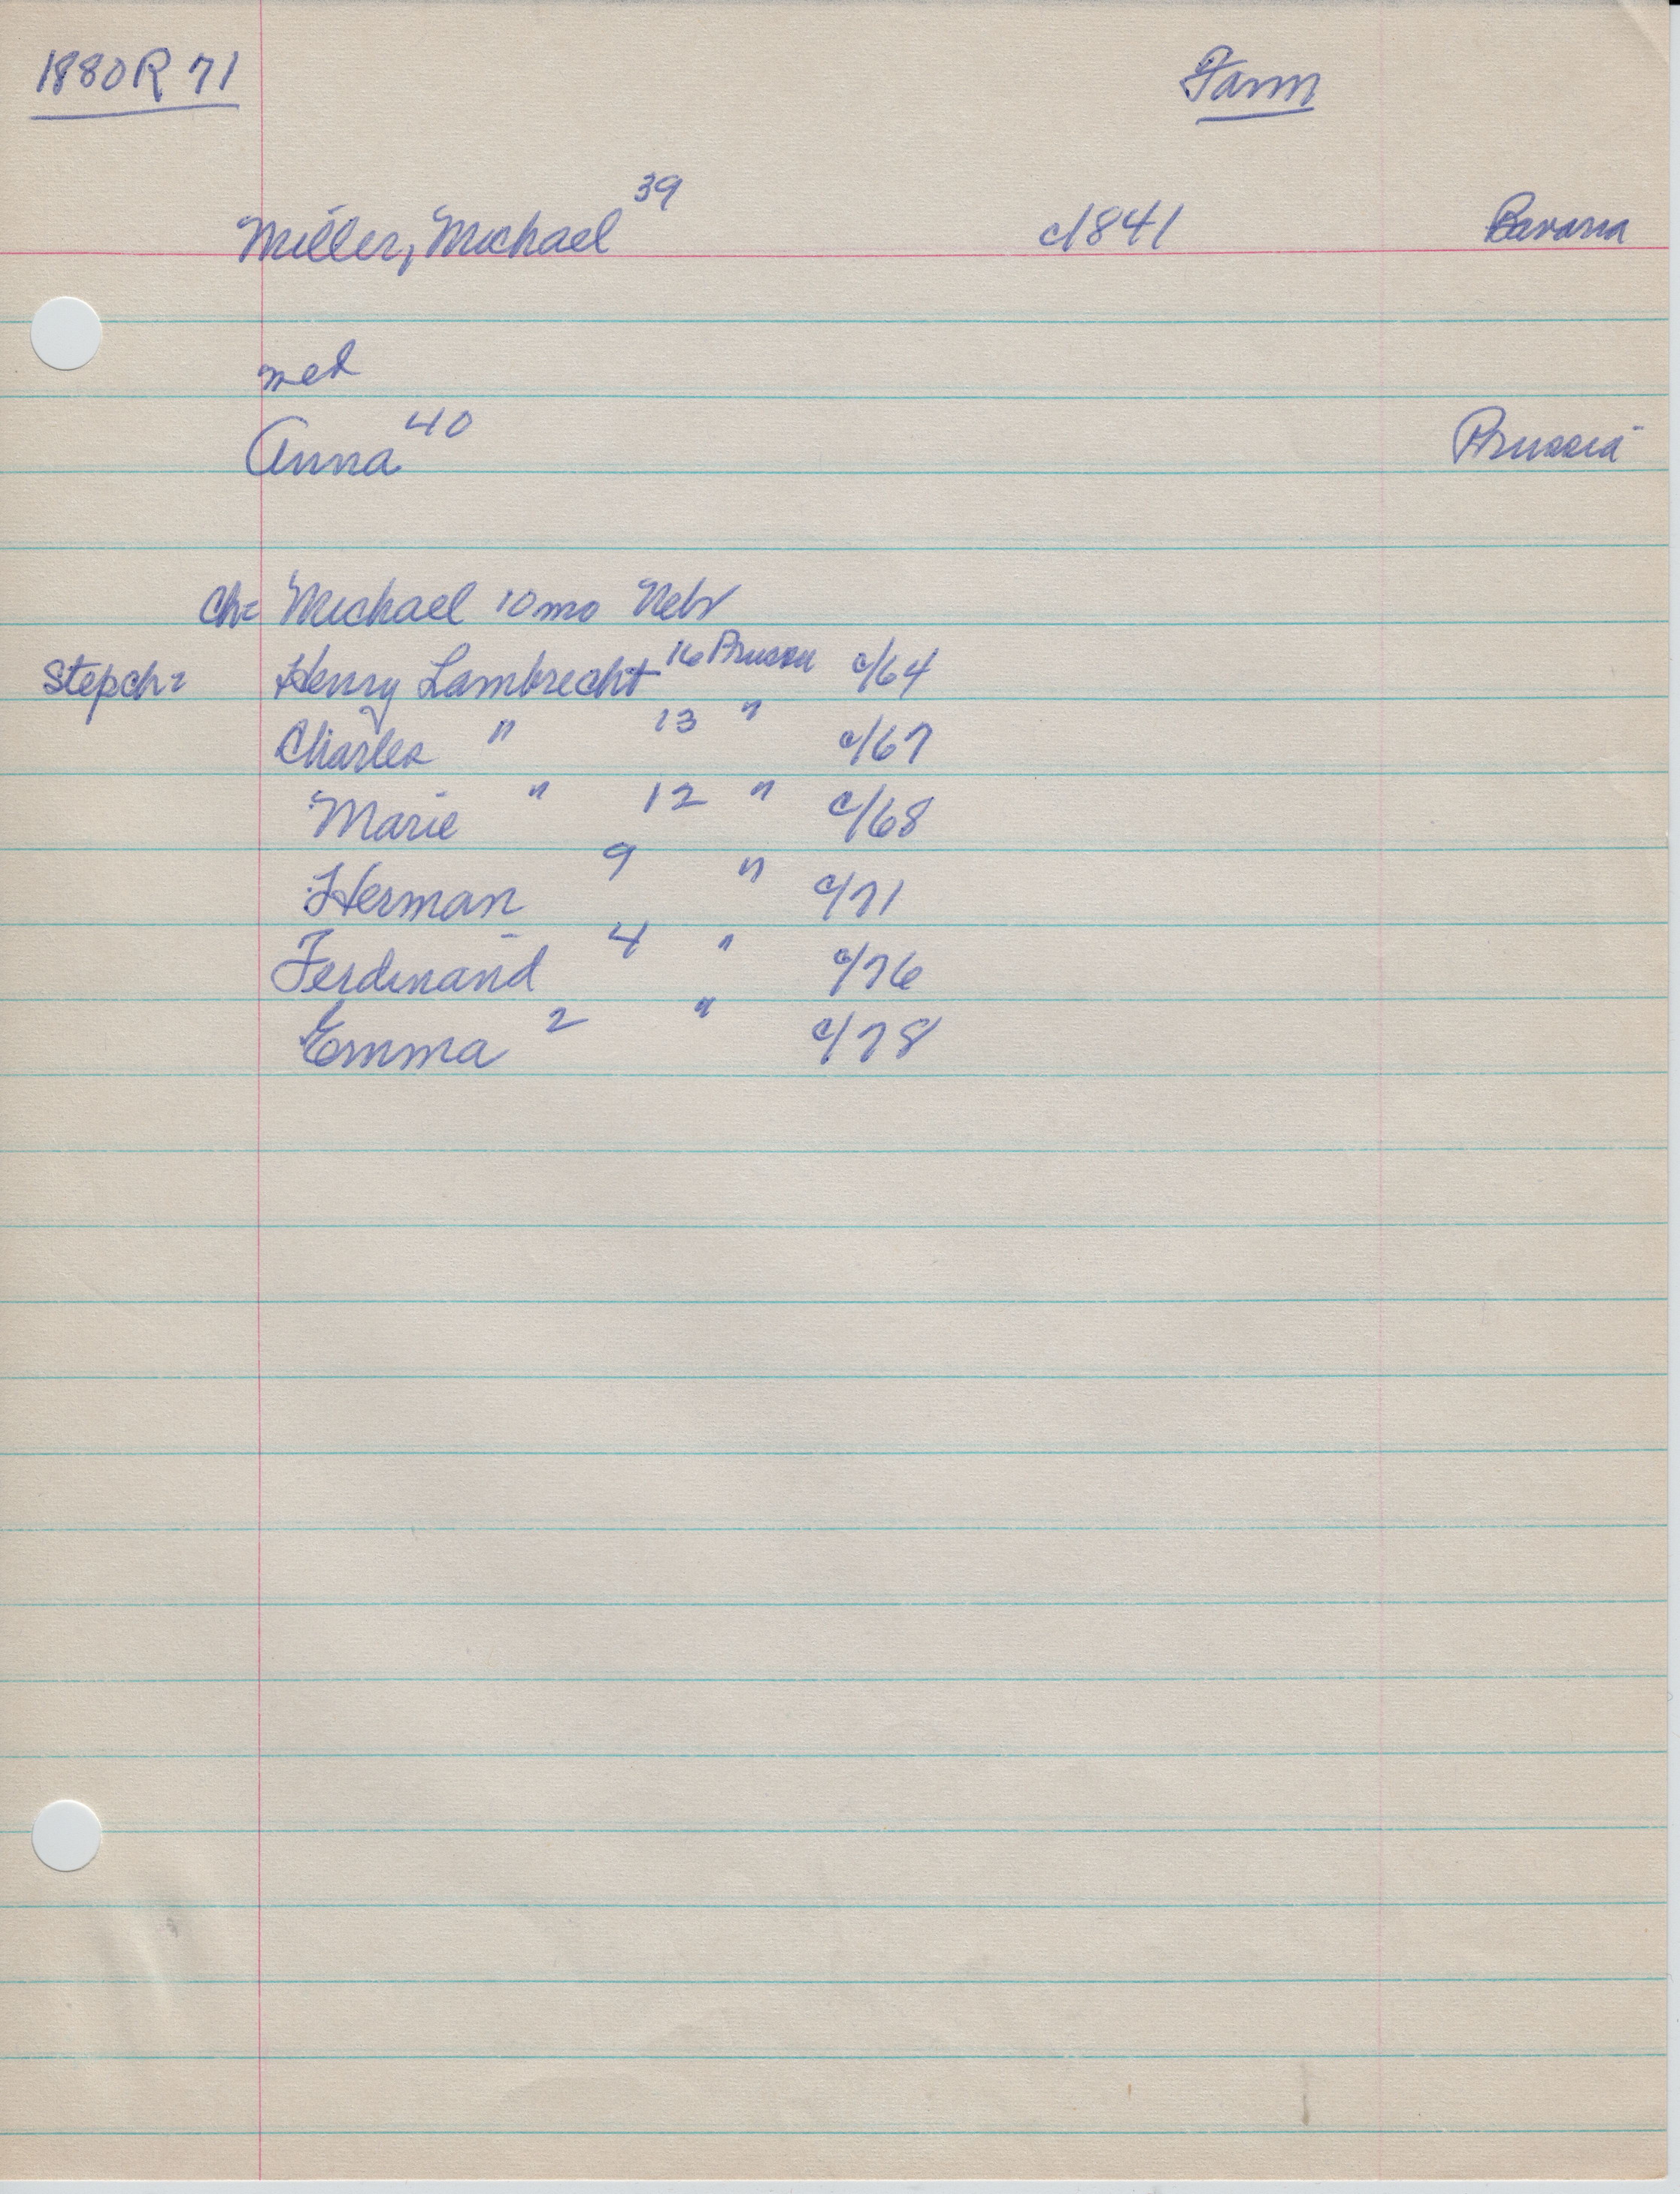 1880R 71 Farm
Miller, Michael 39 c/1841 Bavaria
med
Anna 40 Prussia
Ch= Michael 10 mo Nebr
Stepch= Henry Lambrecht 16 Prussia c/64
Charles " 13 " c/67
Marie " 12 " c/68
Herman 9 " c/71
Ferdinand 4 " c/76
Emma 2 " c/78